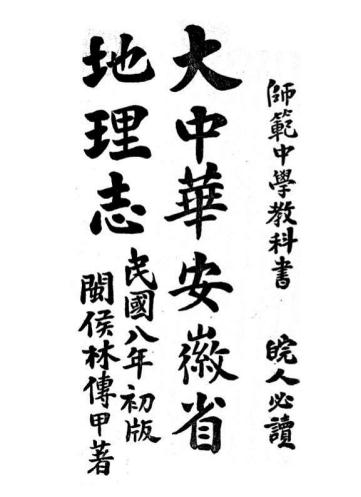 師範中學教科書 皖人必讀
大中華安徽省
地理志
民國八年初版
閩侯林傳甲著